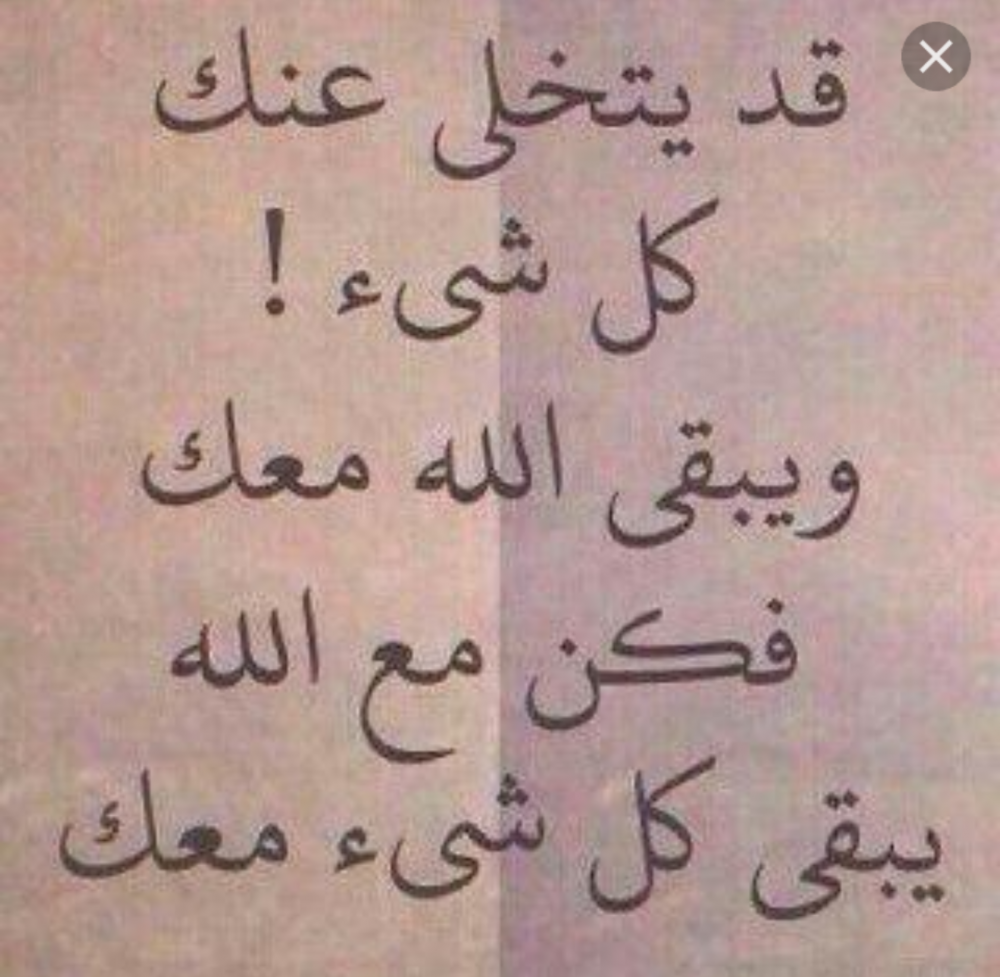 قد يتخلى عنك
كل شىء !
ويبقى الله معك
فكن مع الله
يبقى كل شىء معك